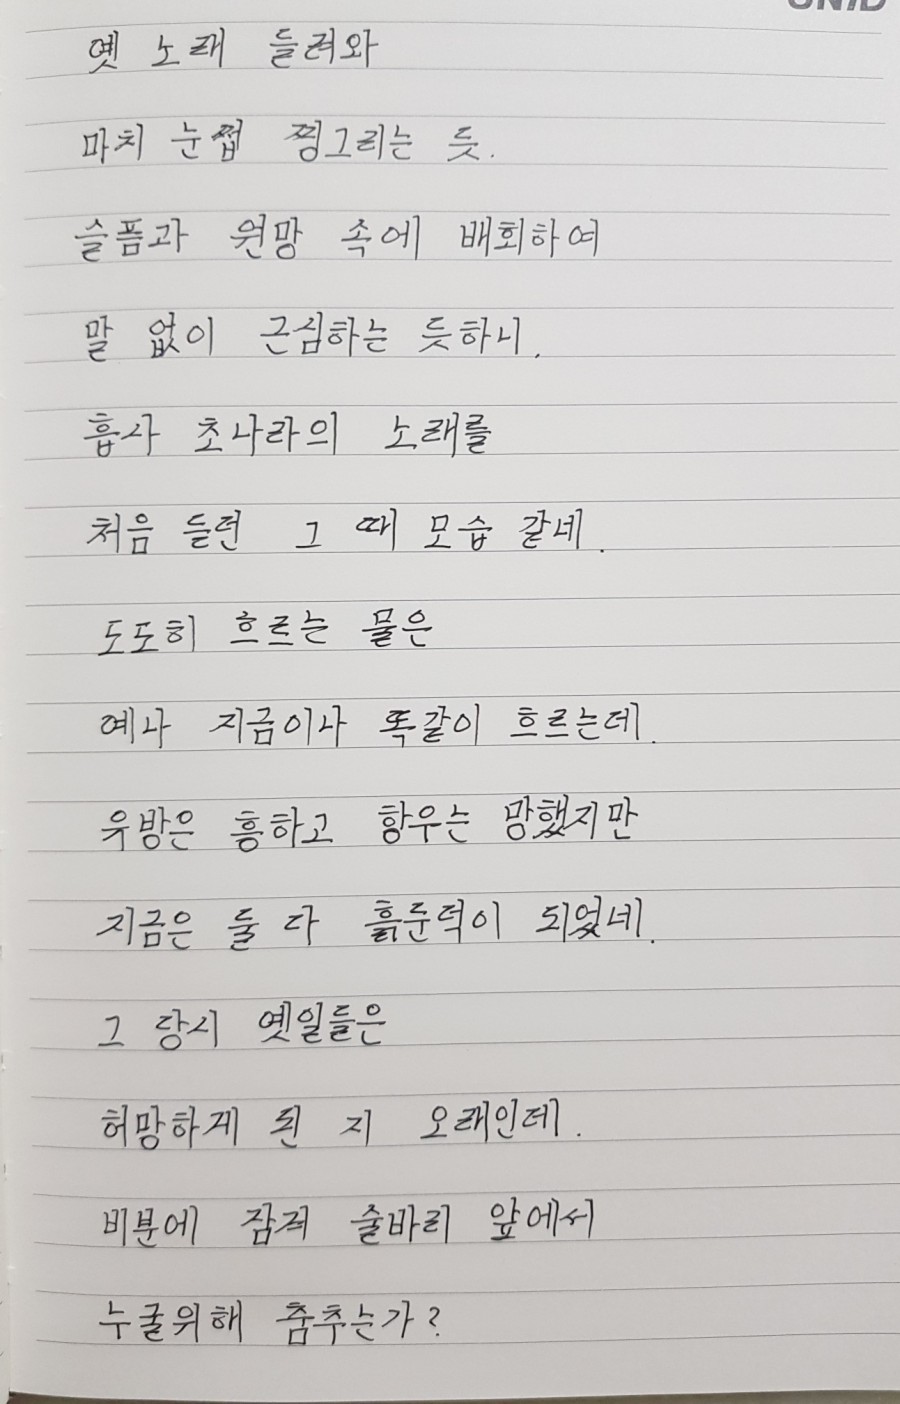 옛 노래 들려와
마치 눈썹 찡그리는 듯.
슬픔과 원망 속에 배회하여
말 없이 근심하는 듯하니.
흡사 초나라의 노래를
처음 들던 그 때 모습 같네.
도도히 흐르는 물은
예나 지금이나 똑같이 흐르는데.
유방은 흥하고 항우는 망했지만
지금은 둘 다 흙둔덕이 되었네.
그 당시 옛일들은
허망하게 된 지 오래인데.
비분에 잠겨 술바리 앞에서
누굴위해 춤추는가?